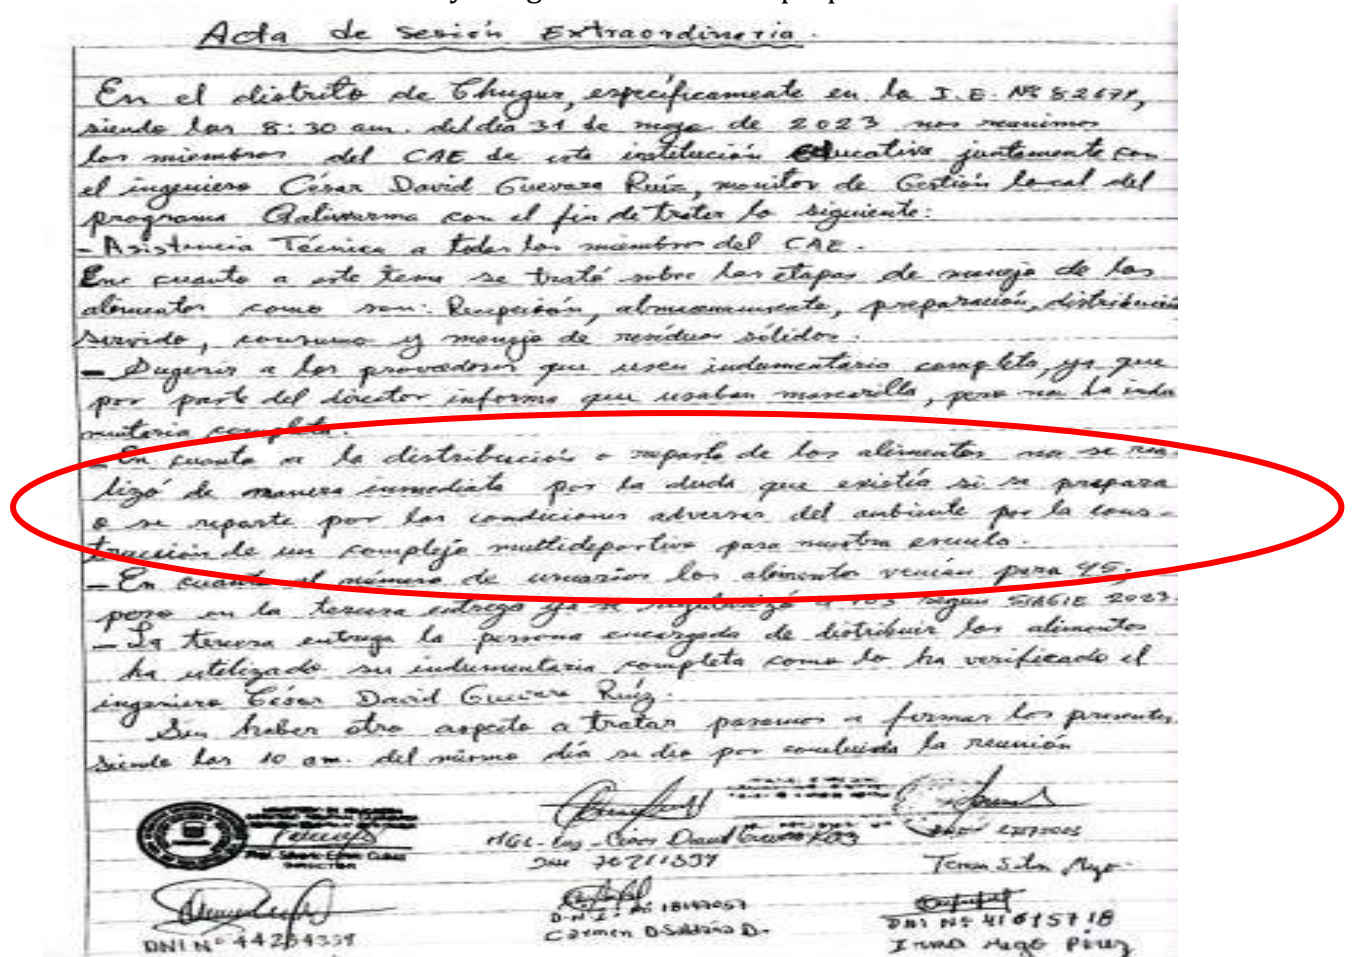 Acta de sesión Extraordinaria.
En el distrito de Chugur, específicamente en la I.E. Nº 82679,
siendo las 8:30 am. del día 31 de mayo de 2023 nos reunimos
los miembros del CAE de esta institución educativa juntamente con
el ingeniero César David Guevara Ruíz, monitor de Gestión local del
programa Qaliwarma con el fin de tratar lo siguiente:
- Asistencia Técnica a todos los miembros del CAE.
En cuanto a este tema se trató sobre las etapas de manejo de los
alimentos como son: Recepción, almacenamiento, preparación, distribución
servido, consumo y manejo de residuos sólidos.
- Sugerir a los proveedores que usen indumentaria completa, ya que
por parte del director informa que usaban mascarilla, pero no la indu
mentaria completa.
- En cuanto a la distribución o reparto de los alimentos no se rea-
lizó de manera inmediata por la duda que existía si se prepara
o se reparte por las condiciones adversas del ambiente por la cons-
trucción de un complejo multideportivo para nuestra escuela.
- En cuanto al número de usuarios los alimentos venían para 45;
pero en la tercera entrega ya se regularizó a 103 según SIAGIE 2023.
- La tercera entrega la persona encargada de distribuir los alimentos
ha utilizado su indumentaria completa como lo ha verificado el
ingeniero César David Guevara Ruíz.
Sin haber otro aspecto a tratar pasamos a firmar los presentes
siendo las 10 am. del mismo día se dio por concluida la reunión
DIRECTOR
César David Guevara Ruiz
DNI Nº 44264339
D.N.I. Nº 18147057
Carmen
DNI Nº 41615718
Irma Mego Pérez